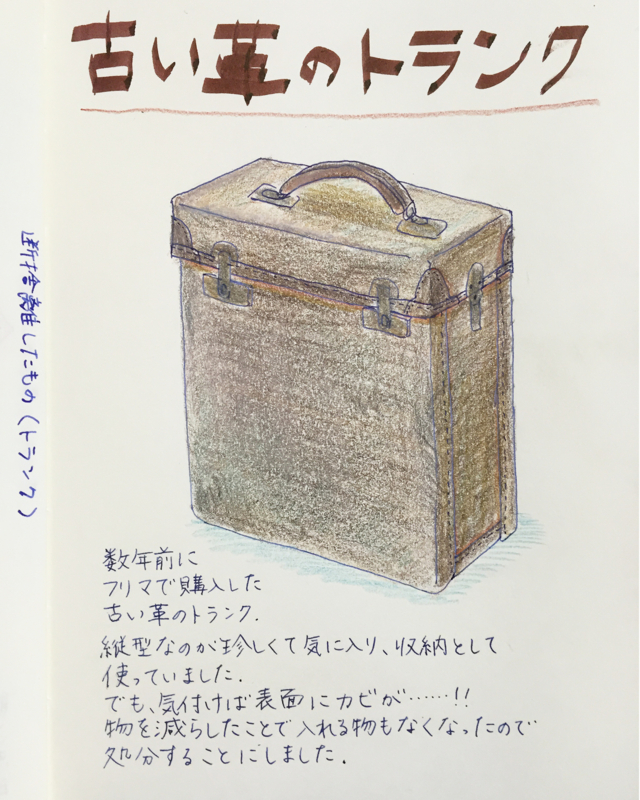 古い革のトランク
断捨離したもの(トランク)
数年前に
フリマで購入した
古い革のトランク.
縦型なのが珍しくて気に入り、収納として
使っていました.
でも、気付けば表面にカビが……!!
物を減らしたことで入れる物もなくなったので
処分することにしました.